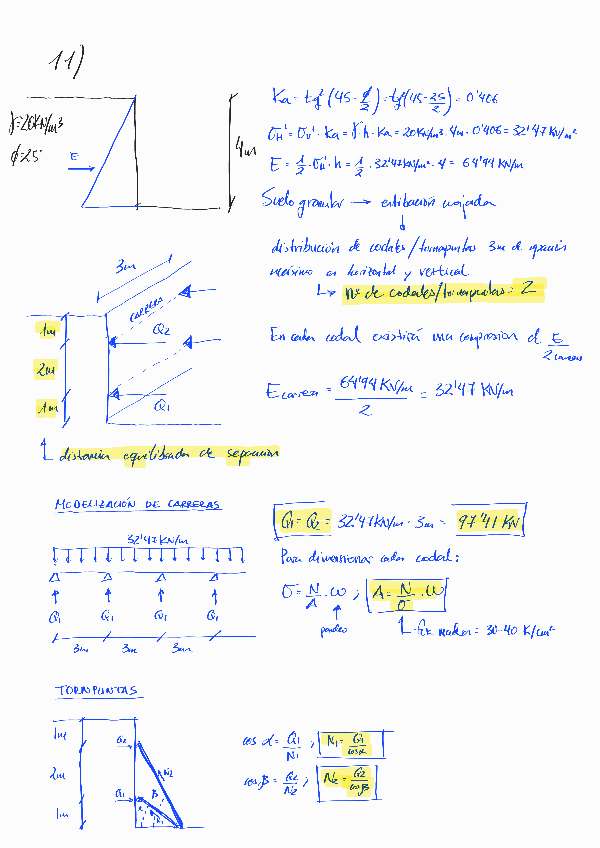 11)
γ=20KN/m³
ϕ=25
E
4m
Ka = tg²(45-ϕ/2) = tg²(45-25/2) = 0'406
σH' = σv' · Ka = γ·h·Ka = 20KN/m³ · 4m · 0'406 = 32'47 KN/m²
E = 1/2 · σH' · h = 1/2 · 32'47KN/m² · 4 = 64'94 KN/m
Suelo granular → entibación cuajada
distribución de codales/tornapuntas 3m de separación
máximo en horizontal y vertical
↳ nº de codales/tornapuntas = 2
3m
CARRERA
Q2
Q1
1m
2m
1m
En cada codal existirá una compresión de E/2 carreras
E carrera = 64'94 KN/m / 2 = 32'47 KN/m
distancia equilibrada de separación
MODELIZACIÓN DE CARRERAS
32'47 KN/m
Q1 Q1 Q1 Q1
3m 3m 3m
Q1 = Q2 = 32'47KN/m · 3m = 97'41 KN
Para dimensionar cada codal:
σ = N/A · ω ; A = N/σ · ω
pandeo
fk madera = 30-40 K/cm²
TORNAPUNTAS
1m
2m
1m
Q2
Q1
N2
β
α
N1
cos α = Q1/N1 ; N1 = Q1/cosα
cos β = Q2/N2 ; N2 = Q2/cosβ